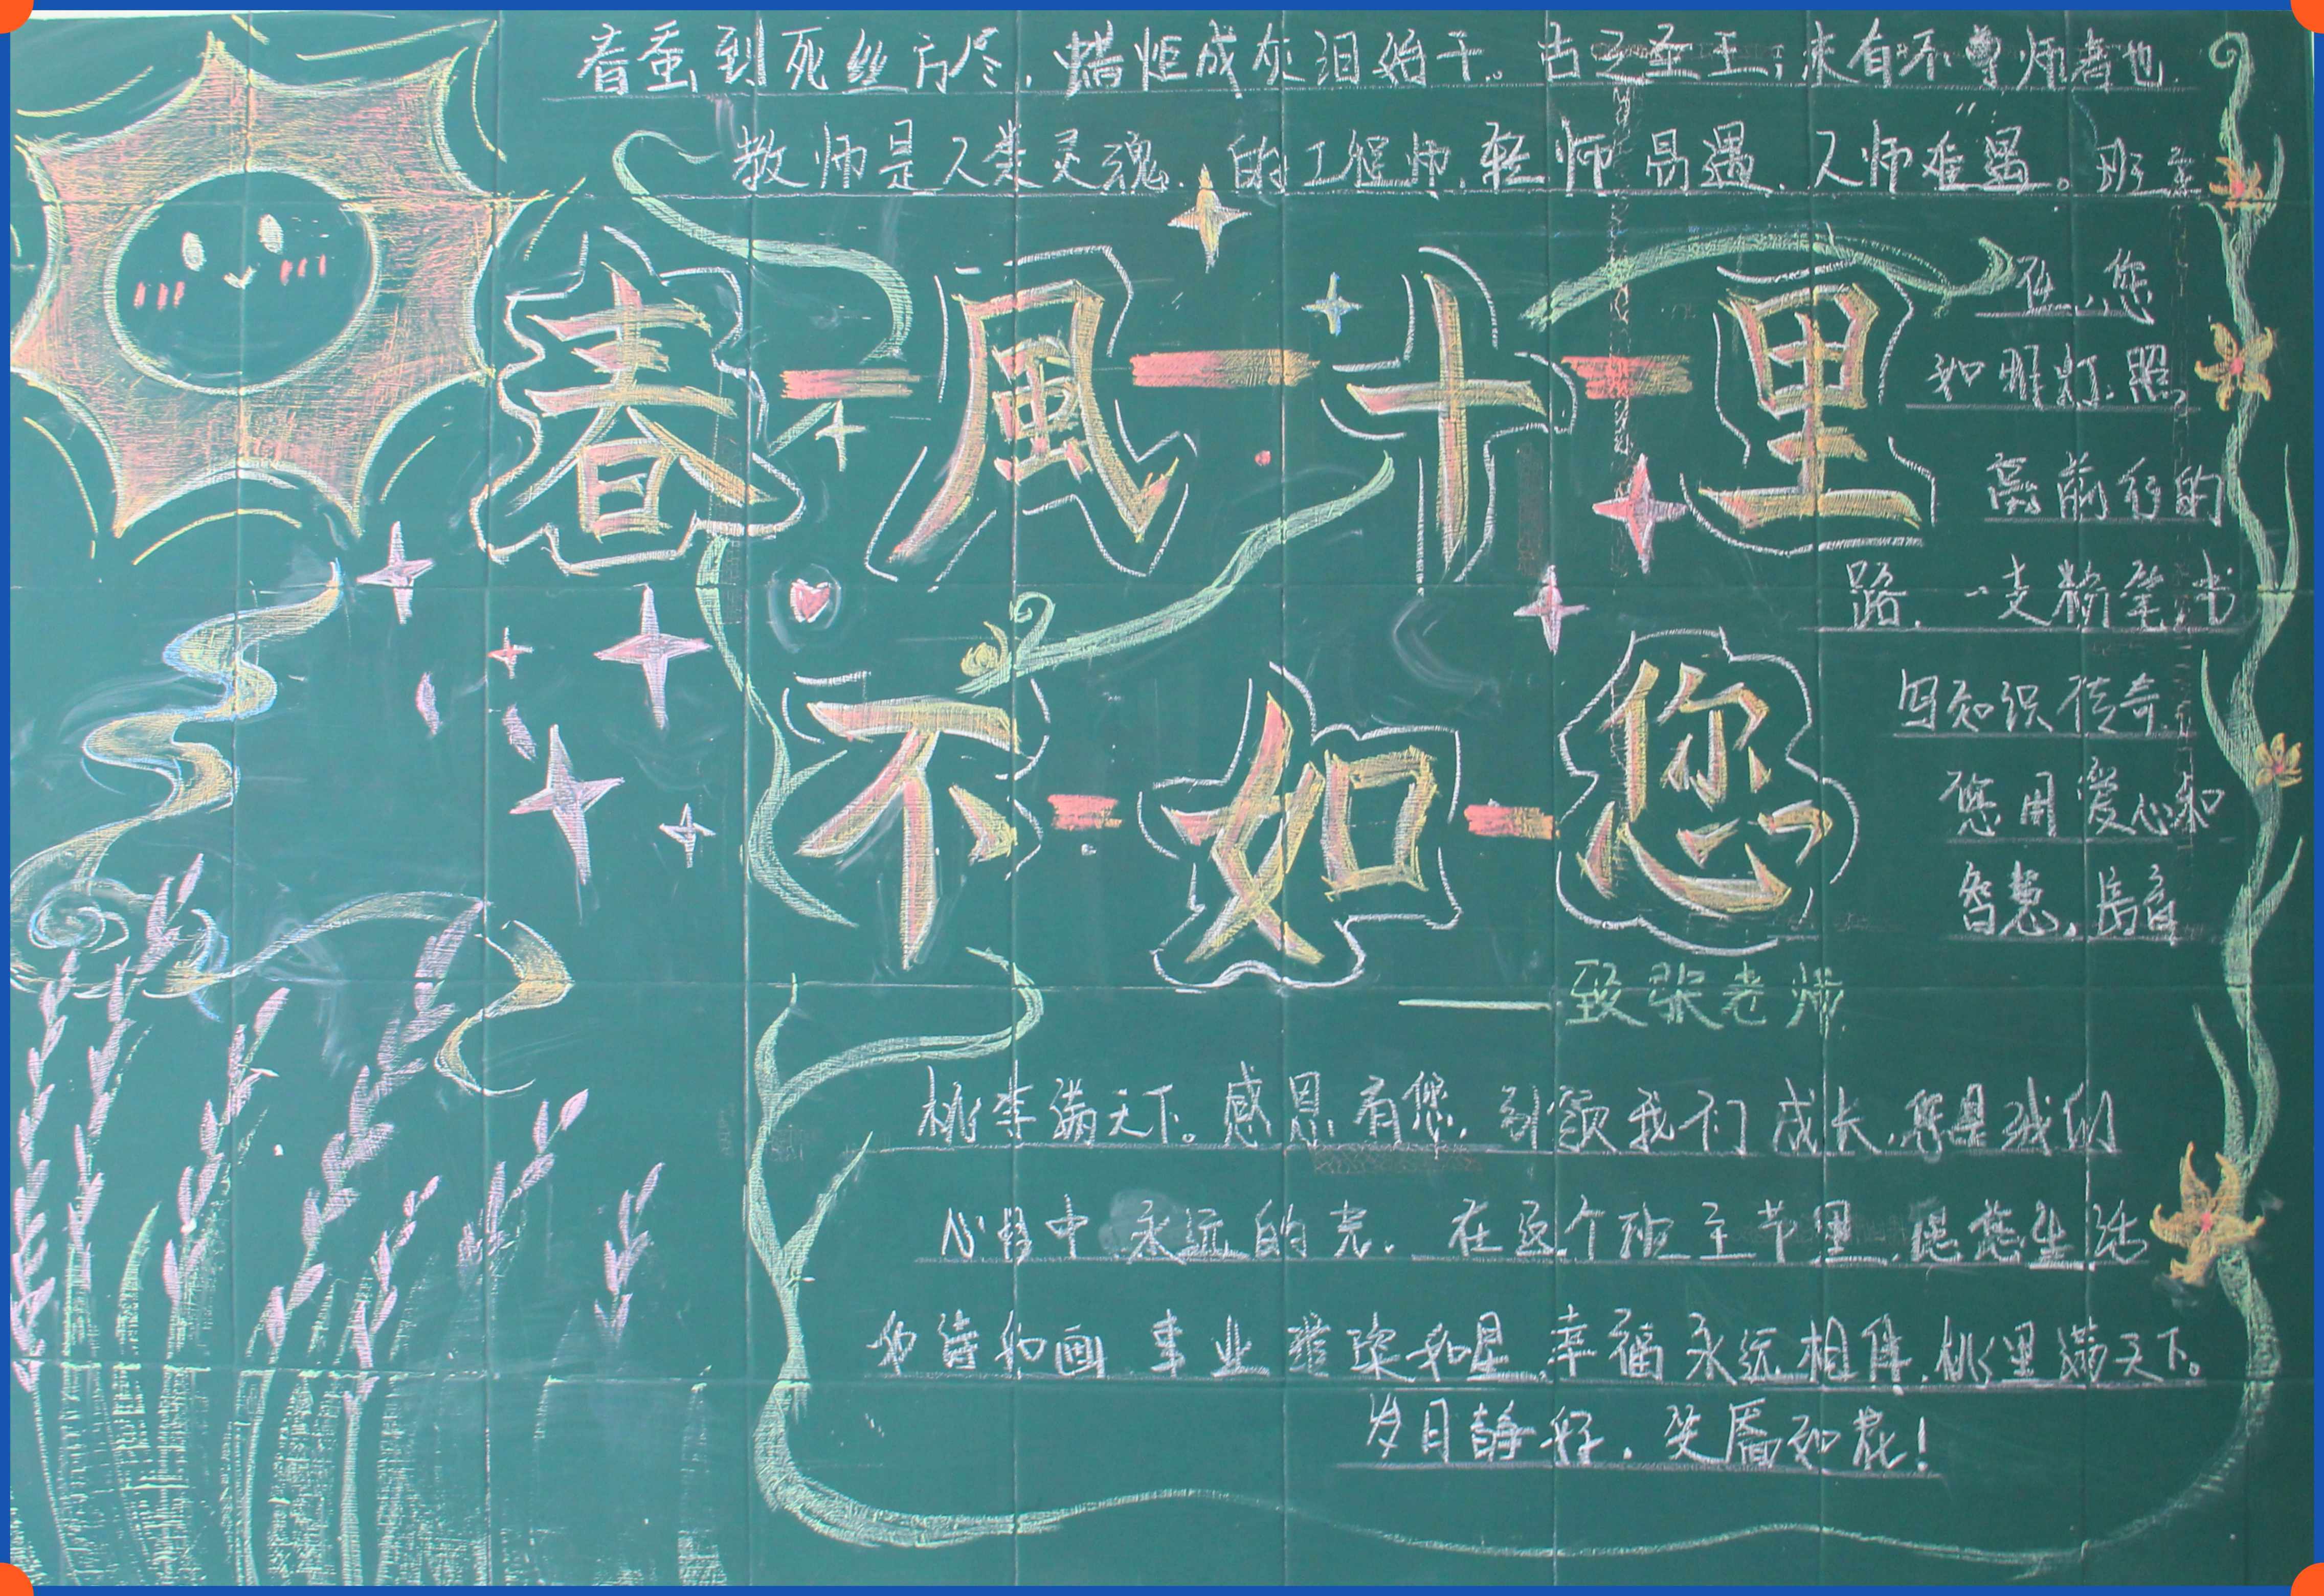 春蚕到死丝方尽,蜡炬成灰泪始干。古之圣王,未有不尊师者也.
教师是人类灵魂.的工程师.经师易遇.人师难遇。班主
任,您
如明灯.照
亮前行的
路.一支粉笔书
写知识传奇.
您用爱心和
智慧.
春-風-十-里
不-如-您
——致张老师
桃李满天下。感恩有您.引领我们成长.您是我们
心中永远的光.在这个班主节里.愿您生活
如诗如画 事业璀璨如星.幸福永远相伴.桃里满天下。
岁月静好.笑靥如花!